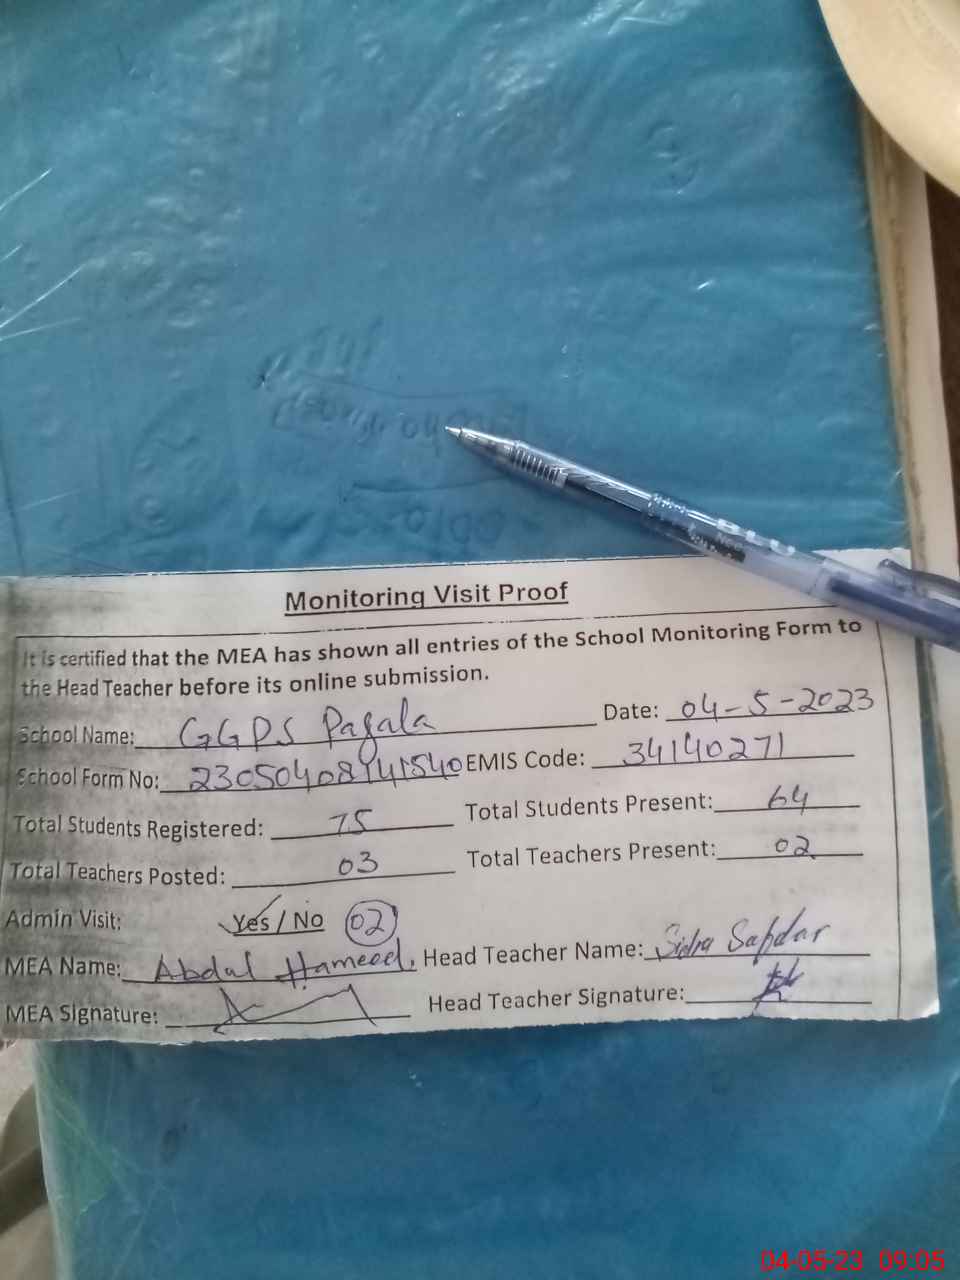 Monitoring Visit Proof
It is certified that the MEA has shown all entries of the School Monitoring Form to
the Head Teacher before its online submission.
School Name: GGPS Pagala Date: 04-5-2023
School Form No: 23050408141540 EMIS Code: 34140271
Total Students Registered: 75 Total Students Present: 64
Total Teachers Posted: 03 Total Teachers Present: 02
Admin Visit: Yes / No 02
MEA Name: Abdul Hameed. Head Teacher Name: Sidra Safdar
MEA Signature: Head Teacher Signature:
04-05-23 09:05